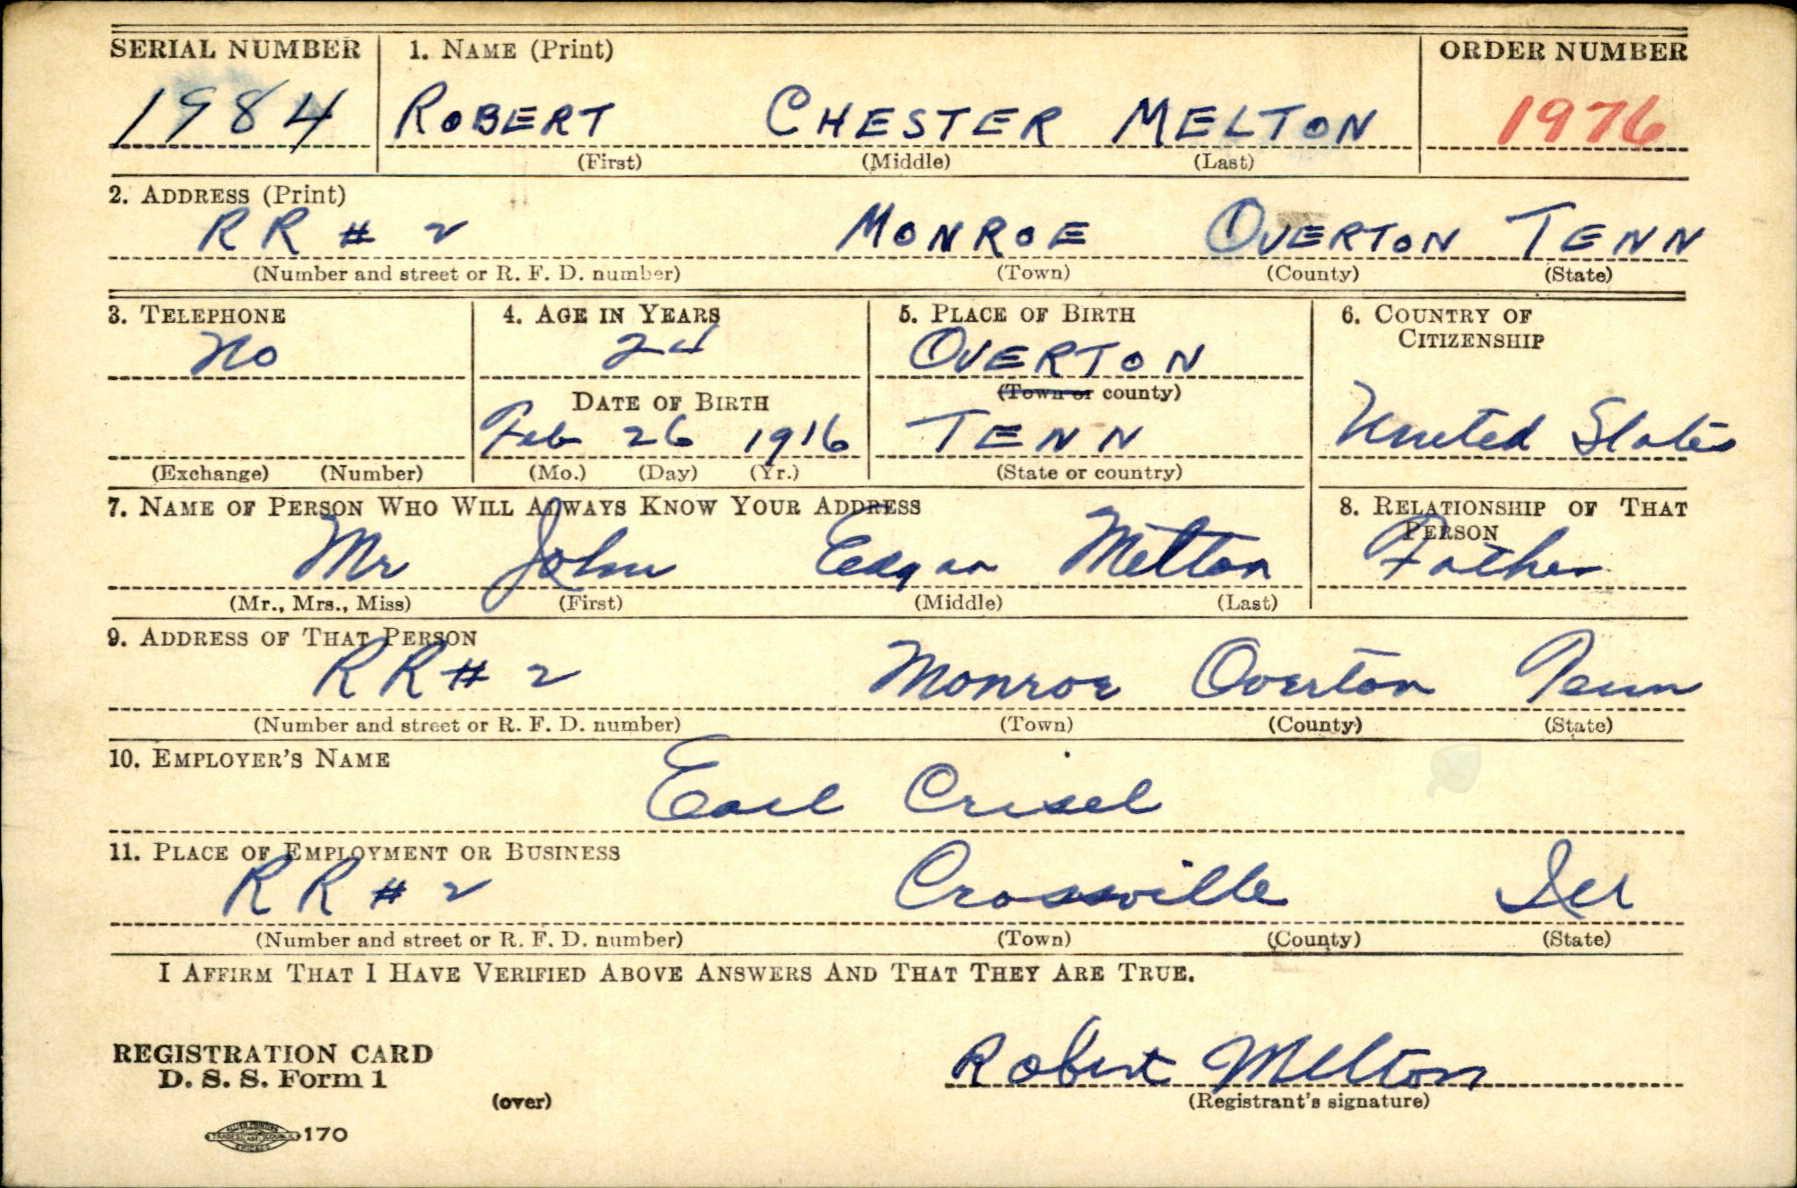 SERIAL NUMBER 1. NAME (Print) ORDER NUMBER
1984 ROBERT CHESTER MELTON 1976
(First) (Middle) (Last)
2. ADDRESS (Print)
RR # 2 MONROE OVERTON TENN
(Number and street or R. F. D. number) (Town) (County) (State)
3. TELEPHONE 4. AGE IN YEARS 5. PLACE OF BIRTH 6. COUNTRY OF
CITIZENSHIP
No 24 OVERTON
DATE OF BIRTH (Town or county)
Feb 26 1916 TENN United States
(Exchange) (Number) (Mo.) (Day) (Yr.) (State or country)
7. NAME OF PERSON WHO WILL ALWAYS KNOW YOUR ADDRESS 8. RELATIONSHIP OF THAT
PERSON
Mr John Edgar Melton Father
(Mr., Mrs., Miss) (First) (Middle) (Last)
9. ADDRESS OF THAT PERSON
RR # 2 Monroe Overton Tenn
(Number and street or R. F. D. number) (Town) (County) (State)
10. EMPLOYER'S NAME
Earl Crisel
11. PLACE OF EMPLOYMENT OR BUSINESS
RR # 2 Crossville Ill
(Number and street or R. F. D. number) (Town) (County) (State)
I AFFIRM THAT I HAVE VERIFIED ABOVE ANSWERS AND THAT THEY ARE TRUE.
REGISTRATION CARD
D. S. S. Form 1
Robert Melton
(over) (Registrant's signature)
170